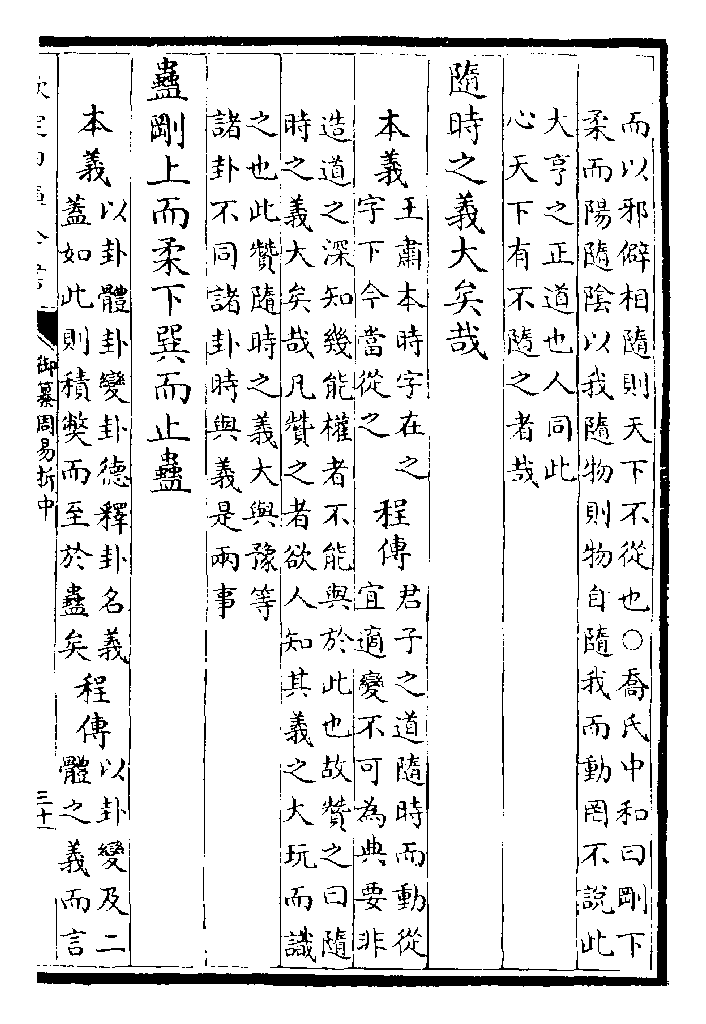 而以邪僻相隨則天下不從也○喬氏中和曰剛下
柔而陽隨陰以我隨物則物自隨我而動罔不說此
大亨之正道也人同此
心天下有不隨之者哉
隨時之義大矣哉
本義
王肅本時字在之
字下今當從之
程傳
君子之道隨時而動從
宜適變不可為典要非
造道之深知幾能權者不能與於此也故贊之曰隨
時之義大矣哉凡贊之者欲人知其義之大玩而識
之也此贊隨時之義大與豫等
諸卦不同諸卦時與義是兩事
蠱剛上而柔下巽而止蠱
本義
以卦體卦變卦德釋卦名義
蓋如此則積獘而至於蠱矣
程傳
以卦變及二
體之義而言
御纂周易折中
三十一